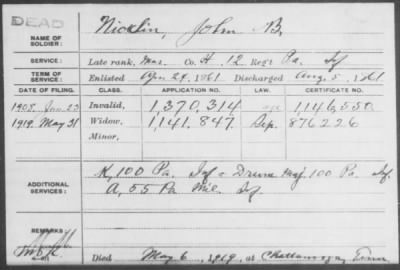 DEAD
NAME OF SOLDIER: Nicklin, John B.
SERVICE: Late rank, Mus. Co. H, 12 Reg't Pa. Inf
TERM OF SERVICE: Enlisted Apr. 29, 1861 Discharged Aug. 5, 1861
DATE OF FILING. CLASS. APPLICATION NO. LAW. CERTIFICATE NO.
1908 Jan 23 Invalid, 1,370,314 1,146,550
1919 May 31 Widow, 1,141,847 Dep. 876226
Minor,
ADDITIONAL SERVICES: K, 100 Pa. Inf - Drum Maj. 100 Pa. Inf
A, 55 Pa Mil. Inf
REMARKS:
Died May 6, 1919, at Chattanooga, Tenn